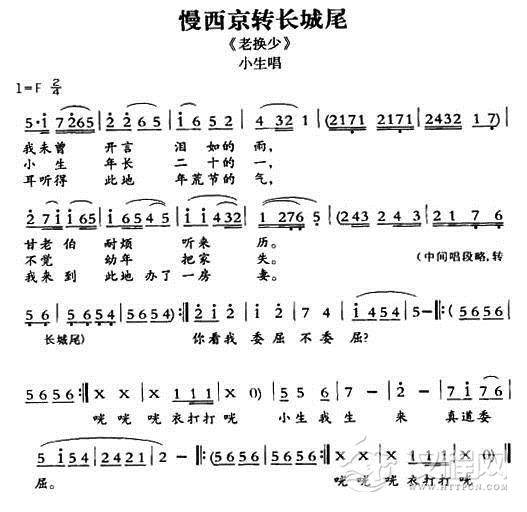 慢西京转长城尾
《老换少》
小生唱
1=F 2/4
5·i 7265 | 2 2 6 5 | i 6 5 2 | 4 32 1 | (2171 2171 | 2432 1 7) |
我未曾 开言 泪 如的 雨,
小 生 年长 二 十的 一,
耳听得 此地 年荒节的 气,
2 7 i i 65 | i 6 5 4 5 | i i 4 32 | 1 276 5 | (243 2432 | 2 1 7 6
甘老伯 耐烦 听来 历。
不觉 幼年 把家 失。(中间唱段略,转
我来到 此地 办了一房 妻。
5 6 5 654 | 5654) :‖ 2 i 2 | i 2 7 4 | i 5 4 5 | 2 - | :(5 6 5 6
长城尾) 你看我 委屈 不委 屈?
5656) :‖ X X | X 1 1 1 | X 0) | 5 5 6 i | 4 - 2 | 7 i 7 6
咣 咣 咣衣打打 咣 小生我生 来 真道委
5 i 5 4 | 2421 | 2 - | :(5656 5656 :‖ X X | X 1 1 1 | X 0) ‖
屈。 咣 咣 咣衣打打 咣
HTTPCN.COM